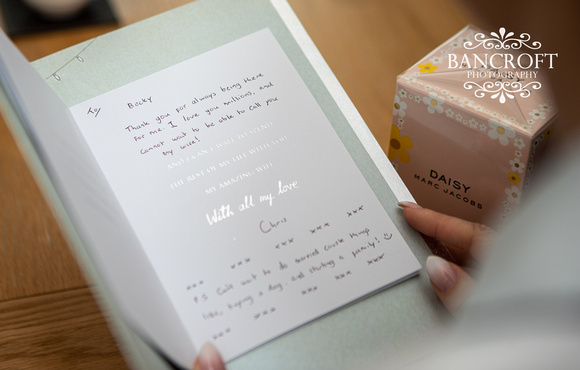 To
Becky
Thank you for always being there
for me. I love you millions, and
cannot wait to be able to call you
my wife!
AND I CAN'T WAIT TO SPEND
THE REST OF MY LIFE WITH YOU
MY AMAZING WIFE
With all my love
Chris
xxx xxx xxx xxx
P.S Can't wait to do married couple things
like, buying a dog, and starting a family! :)
xxx xxx xxx xxx
BANCROFT
PHOTOGRAPHY
DAISY
MARC JACOBS